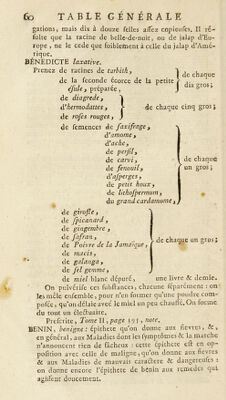 60 TABLE GÉNÉRALE
gations, mais dix à douze selles assez copieuses. Il ré-
sulte que la racine de belle-de-nuit, ou de jalap d'Eu-
rope, ne le cede que foiblement à celle du jalap d'Amé-
rique.
BÉNÉDICTE laxative.
Prenez de racines de turbith,
de la seconde écorce de la petite
ésule, préparée,
de chaque
dix gros;
de diagrede,
d'hermodattes,
de roses rouges,
de chaque cinq gros;
de semences de saxifrage,
d'amome,
d'ache,
de persil,
de carvi,
de fenouil,
d'asperges,
de petit houx,
de lithospermum,
du grand cardamome,
de chaque
un gros;
de girofle,
de spicanard,
de gingembre,
de safran,
de Poivre de la Jamaïque,
de macis,
de galanga,
de sel gemme,
de chaque un gros;
de miel blanc dépuré, une livre & demie.
On pulvérise ces substances, chacune séparément : on
les mêle ensemble, pour n'en former qu'une poudre com-
posée, qu'on délaie avec le miel un peu chauffé. On forme
du tout un électuaire.
Prescrite, Tome II, page 191, note.
BENIN, benigne : épithete qu'on donne aux fievres, &,
en général, aux Maladies dont les symptômes & la marche
n'annoncent rien de fâcheux : cette épithete est en op-
position avec celle de maligne, qu'on donne aux fievres
& aux Maladies de mauvais caractere & dangereuses :
on donne encore l'épithete de bénin aux remedes qui
agissent doucement.